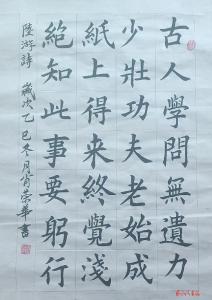 古人學問無遺力
少壯功夫老始成
紙上得来終覺淺
絕知此事要躬行
陸游詩 歲次乙巳冬月肖荣華書